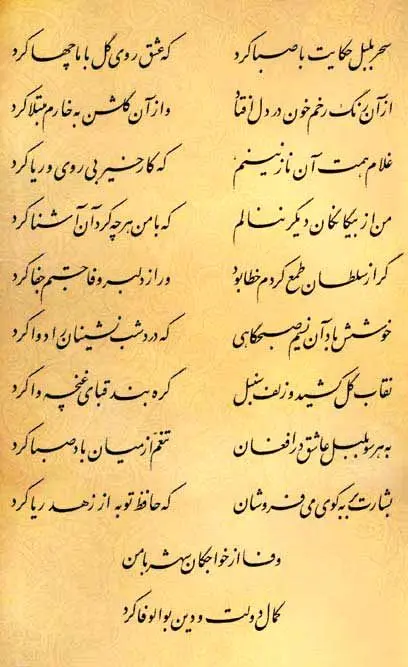 سحر بلبل حکایت با صبا کرد که عشق روی گل با ما چها کرد
از آن رنگ رخم خون در دل افتاد و از آن گلشن به خارم مبتلا کرد
غلام همت آن نازنینم که کار خیر بی روی و ریا کرد
من از بیگانگان دیگر ننالم که با من هر چه کرد آن آشنا کرد
گر از سلطان طمع کردم خطا بود ور از دلبر وفا جستم جفا کرد
خوشش باد آن نسیم صبحگاهی که درد شب نشینان را دوا کرد
نقاب گل کشید و زلف سنبل گره بند قبای غنچه وا کرد
به هر سو بلبل عاشق در افغان تنعم از میان باد صبا کرد
بشارت بر به کوی می فروشان که حافظ توبه از زهد ریا کرد
وفا از خواجگان شهر با من
کمال دولت و دین بوالوفا کرد